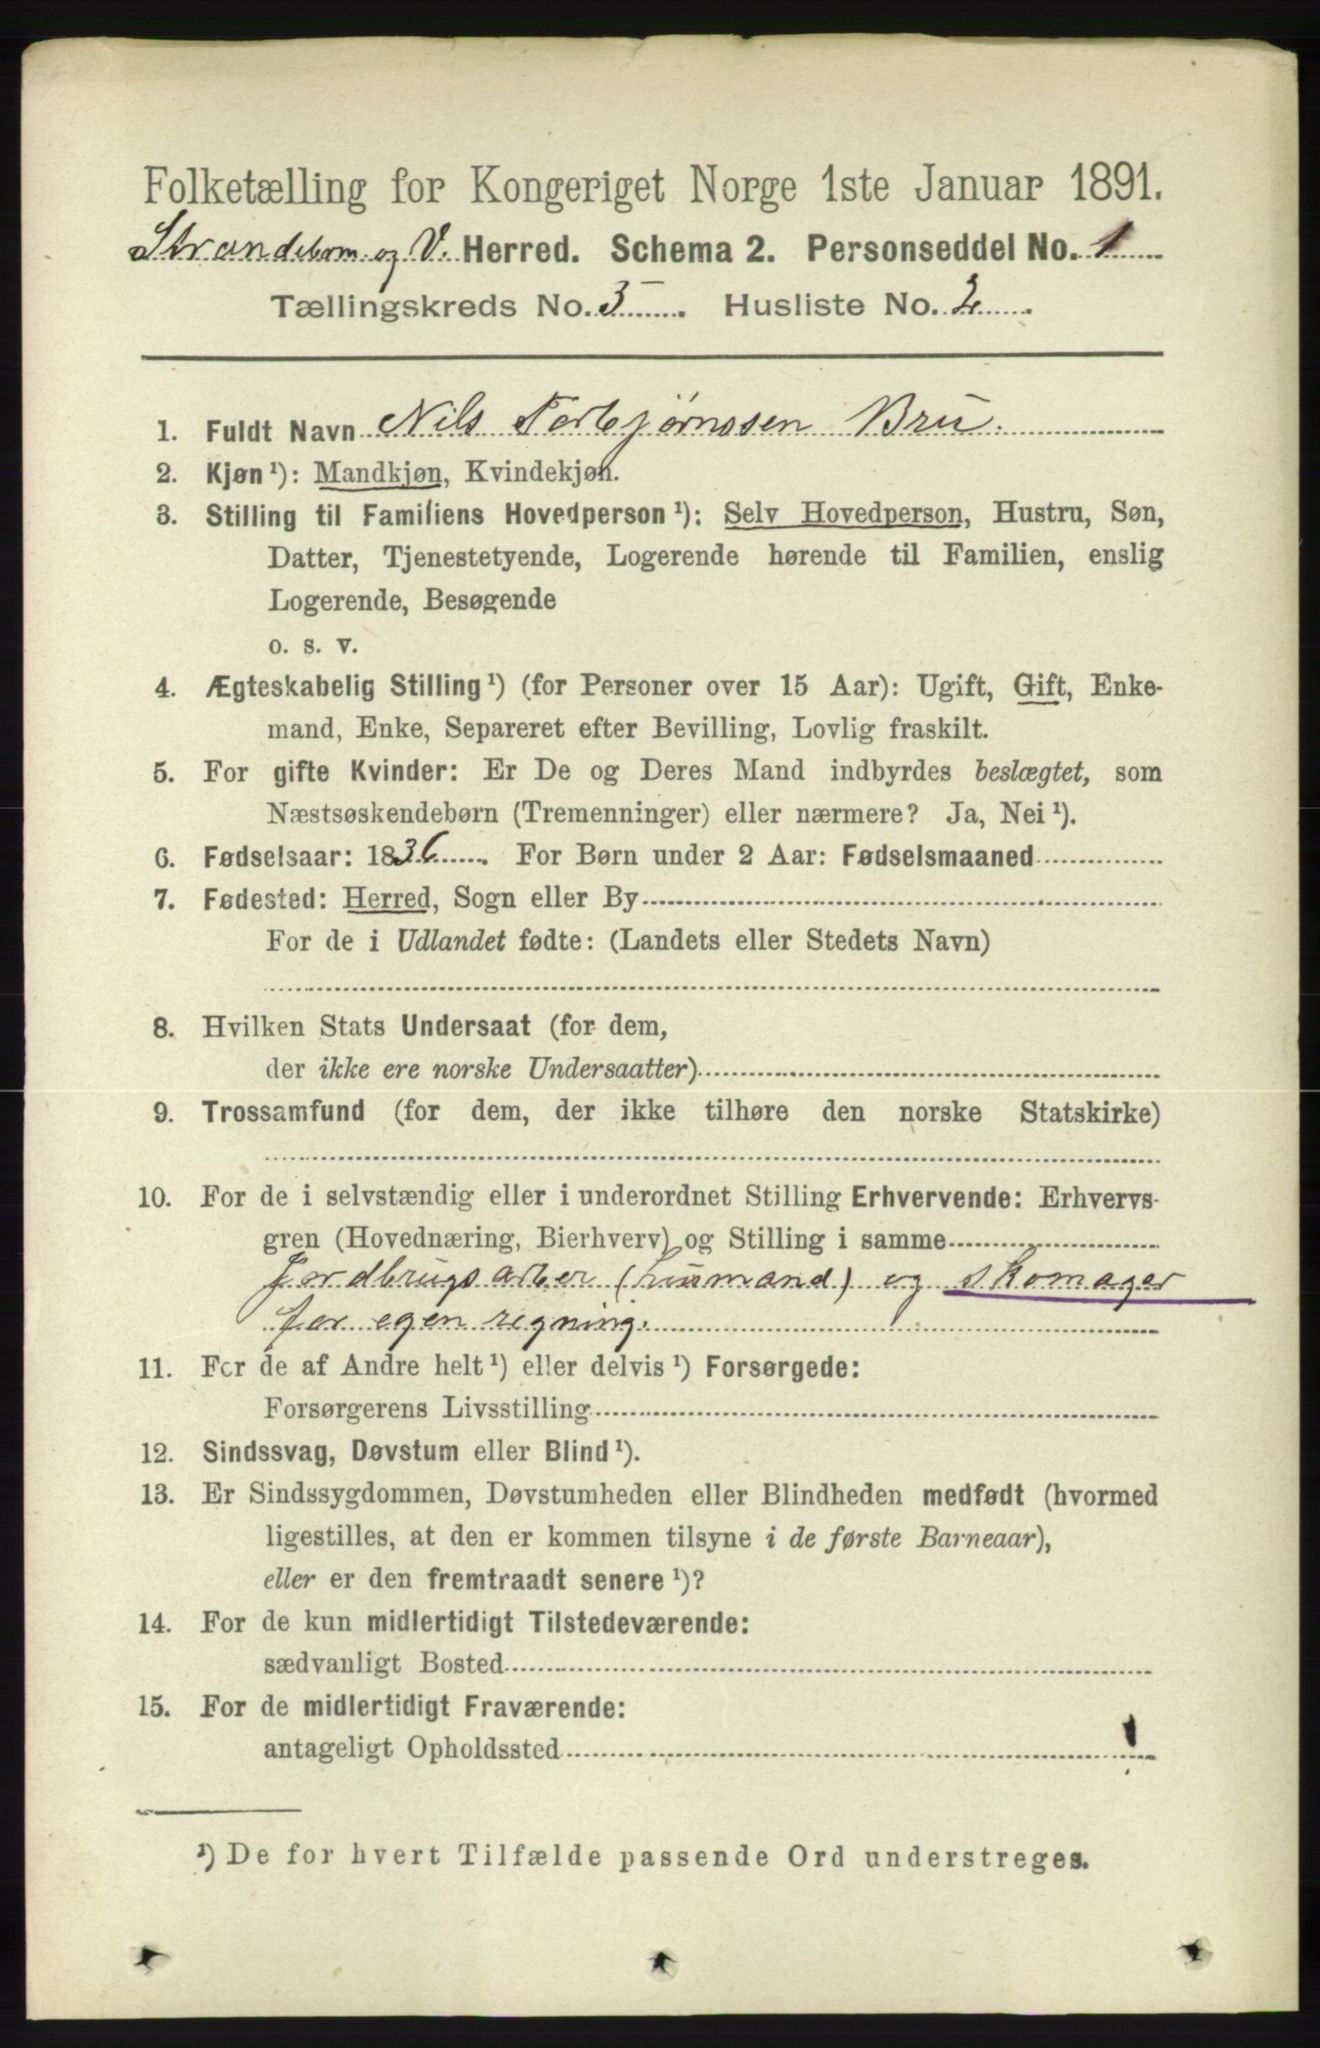 Folketælling for Kongeriget Norge 1ste Januar 1891.
Strandebarm og V. Herred. Schema 2. Personseddel No. 1
Tællingskreds No. 3. Husliste No. 2.
1. Fuldt Navn Nils Torbjørnssen Bru.
2. Kjøn¹): Mandkjøn, Kvindekjøn.
3. Stilling til Familiens Hovedperson¹): Selv Hovedperson, Hustru, Søn,
Datter, Tjenestetyende, Logerende hørende til Familien, enslig
Logerende, Besøgende
o. s. v.
4. Ægteskabelig Stilling¹) (for Personer over 15 Aar): Ugift, Gift, Enke-
mand, Enke, Separeret efter Bevilling, Lovlig fraskilt.
5. For gifte Kvinder: Er De og Deres Mand indbyrdes beslægtet, som
Næstsøskendebørn (Tremenninger) eller nærmere? Ja, Nei¹).
6. Fødselsaar: 1836. For Børn under 2 Aar: Fødselsmaaned
7. Fødested: Herred, Sogn eller By
For de i Udlandet fødte: (Landets eller Stedets Navn)
8. Hvilken Stats Undersaat (for dem,
der ikke ere norske Undersaatter)
9. Trossamfund (for dem, der ikke tilhøre den norske Statskirke)
10. For de i selvstændig eller i underordnet Stilling Erhvervende: Erhvervs-
gren (Hovednæring, Bierhverv) og Stilling i samme
Jordbrugsarber (husmand) og skomager
for egen regning.
11. For de af Andre helt¹) eller delvis¹) Forsørgede:
Forsørgerens Livsstilling
12. Sindssvag, Døvstum eller Blind¹).
13. Er Sindssygdommen, Døvstumheden eller Blindheden medfødt (hvormed
ligestilles, at den er kommen tilsyne i de første Barneaar),
eller er den fremtraadt senere¹)?
14. For de kun midlertidigt Tilstedeværende:
sædvanligt Bosted
15. For de midlertidigt Fraværende:
antageligt Opholdssted
¹) De for hvert Tilfælde passende Ord understreges.